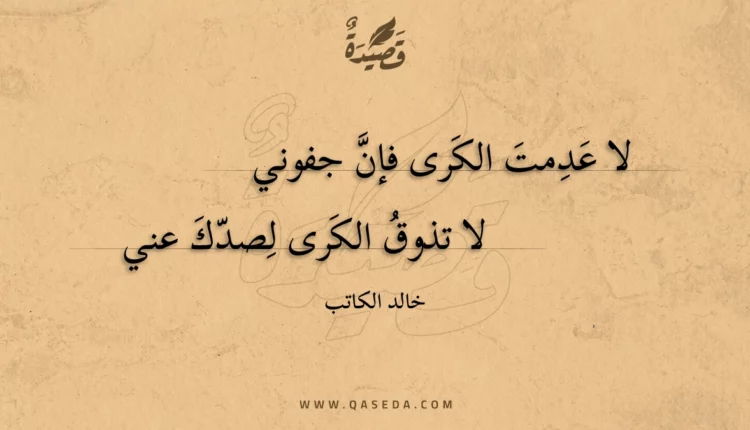 قَصِيْدَةٌ
لا عَدِمتَ الكَرى فإنَّ جفوني
لا تذوقُ الكَرى لِصدّكَ عني
خالد الكاتب
WWW.QASEDA.COM